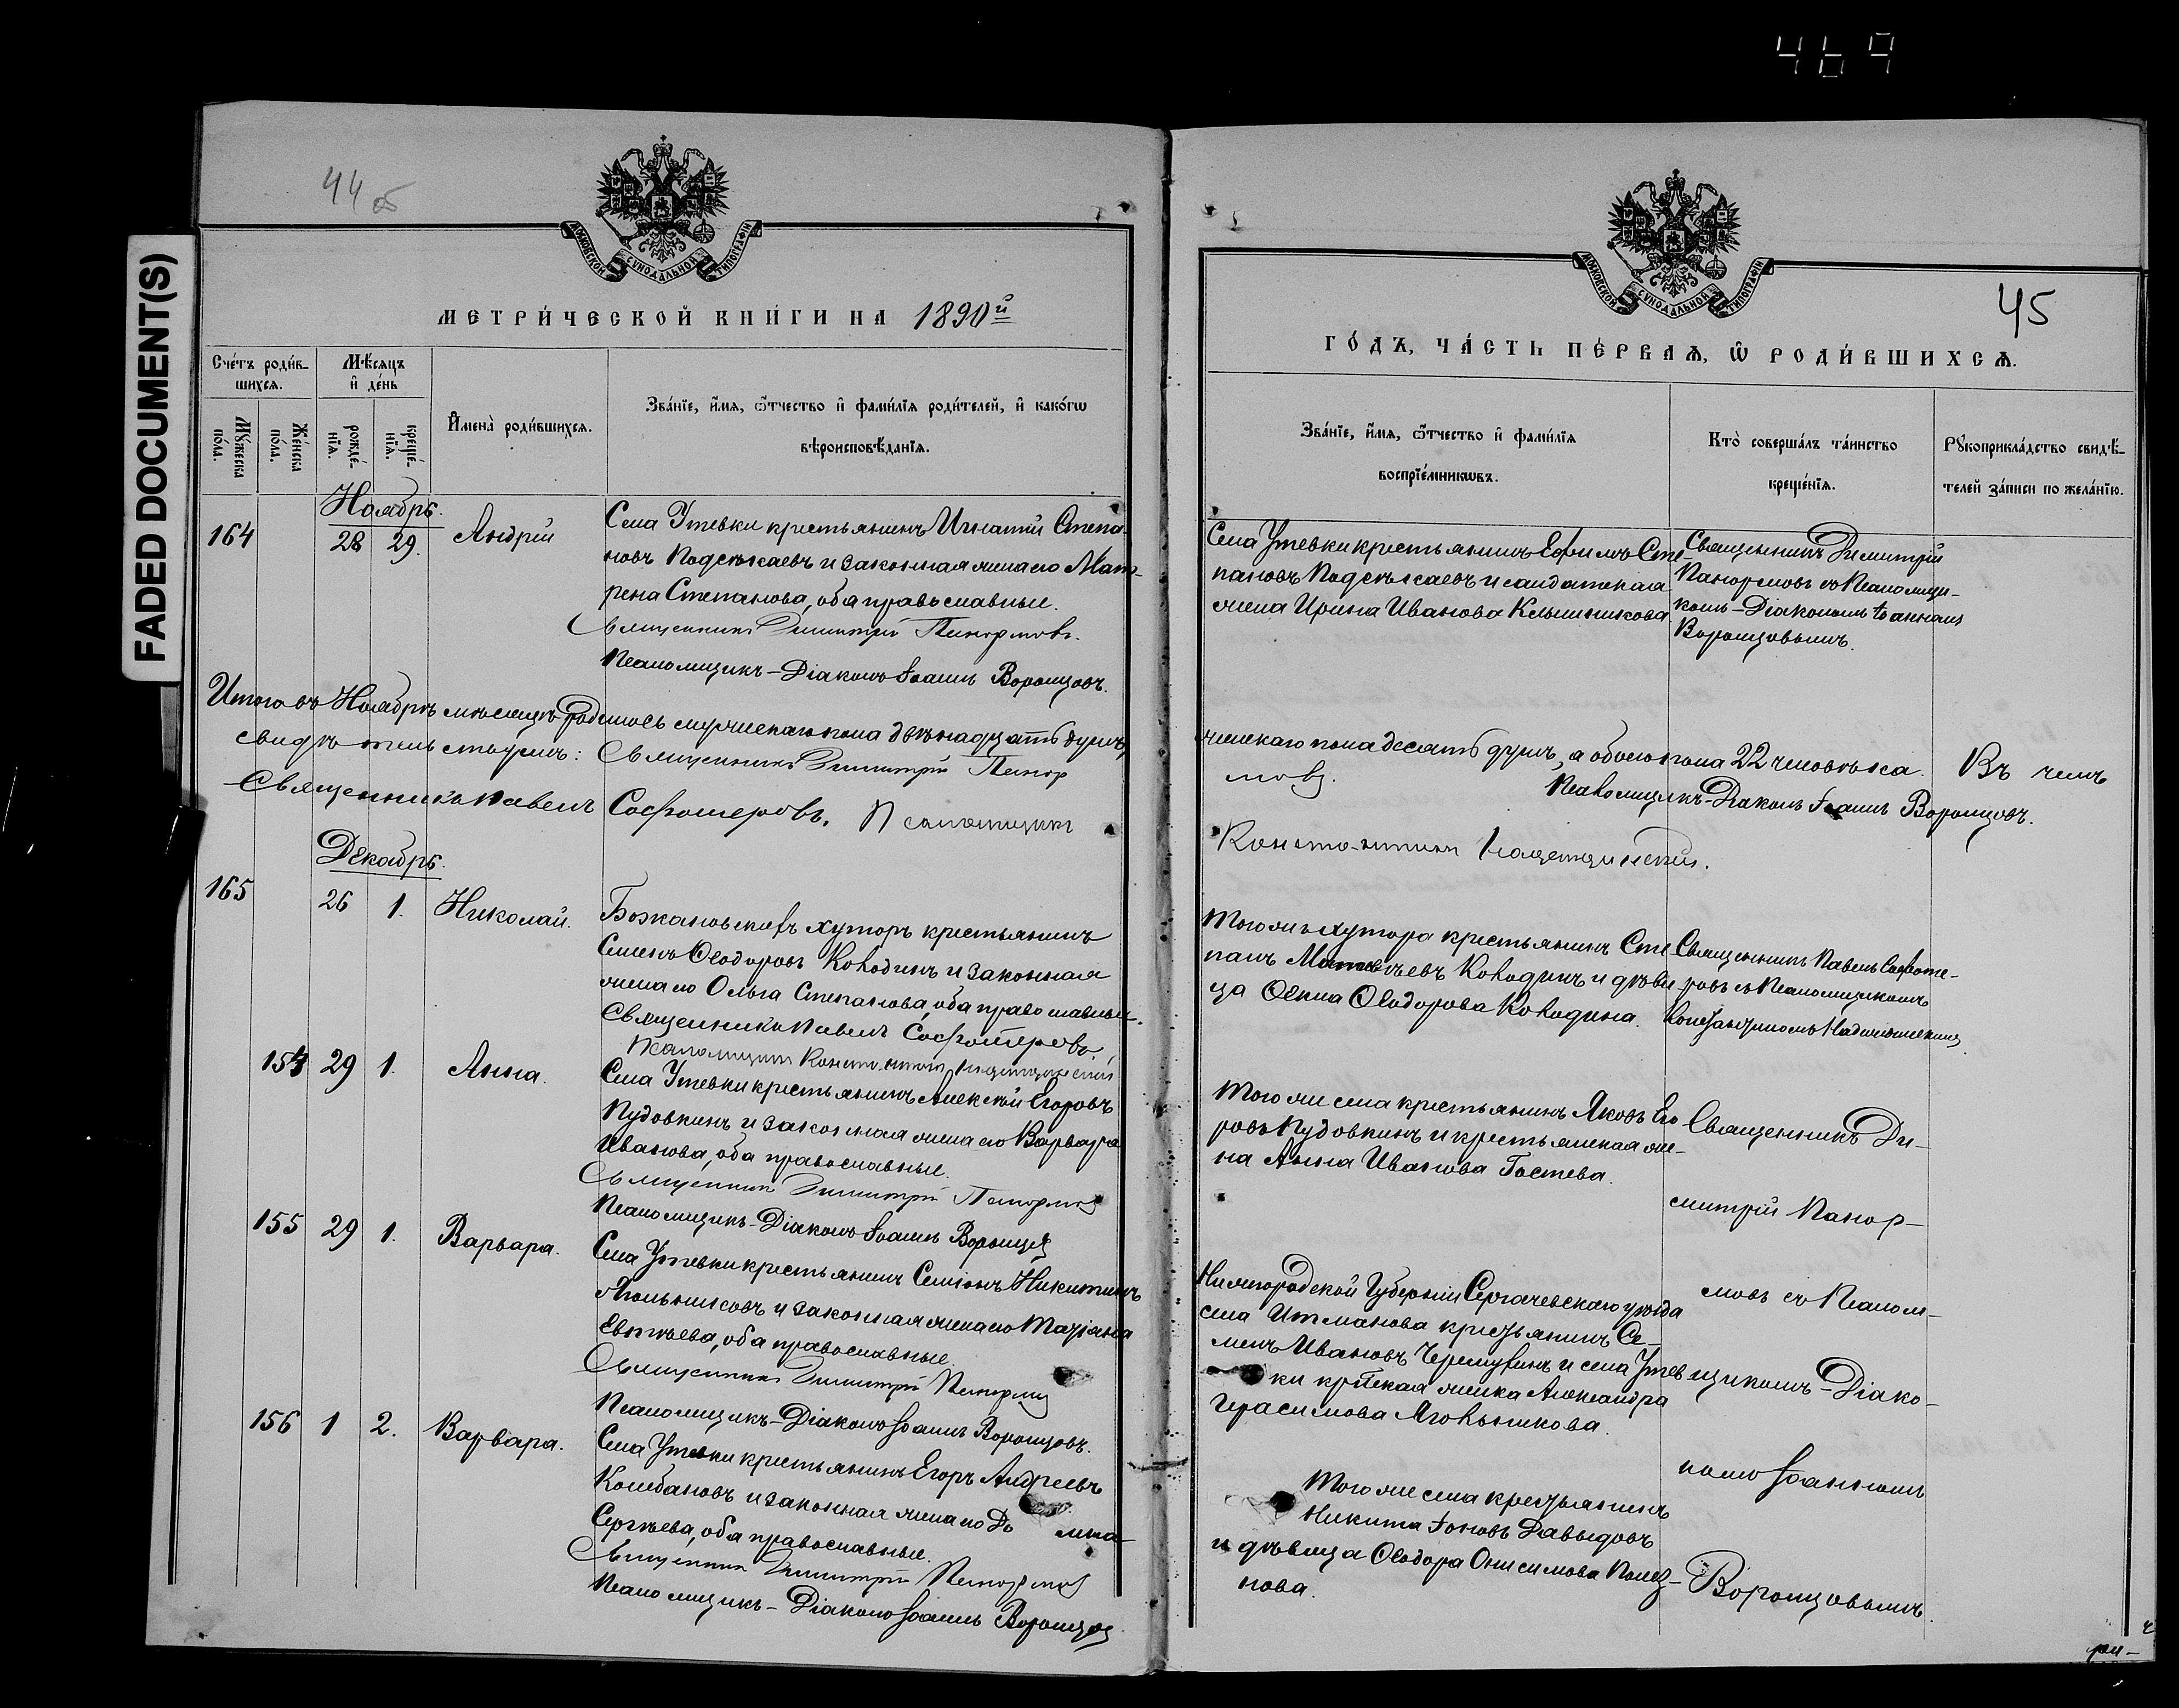 469
FADED DOCUMENT(S)
44 об
МОСКОВСКОЙ СѴНОДАЛЬНОЙ ТИПОГРАФІИ
МЕТРИ́ЧЕСКОЙ КНИ́ГИ НА 1890й
Сче́тъ роди́в-
шихся.
Мѣ́сяцъ
и҆ де́нь
Мꙋ́жеска по́ла.
Же́нска по́ла.
рожде́-
нїѧ.
креще́-
нїѧ.
И҆мена̀ роди́вшихсѧ.
Зва́нїе, и҆́мѧ, ѻ҆́тчество и҆ фами́лїѧ роди́телей, и҆ како́гѡ
вѣроисповѣ́данїѧ.
Ноябрь.
164 28 29. Андрій
Села Утевки крестьянинъ Игнатій Степа-
новъ Подсѣкаевъ и законная жена его Мат-
рена Степанова, оба православные.
Священникъ Димитрій Панормовъ.
Псаломщикъ-Діаконъ Іоаннъ Воронцовъ.
Итого въ Ноябрѣ мѣсяцѣ родилось мужескаго пола двѣнадцать душъ,
свидѣтельствуемъ: Священникъ Димитрій Панор
Священникъ Павелъ Софотеровъ. Псаломщикъ
Декабрь.
165 26 1. Николай.
хуторъ крестьянинъ
Семенъ Ѳеодоровъ Колодинъ и законная
жена его Ольга Степанова, оба православные.
Священникъ Павелъ Софотеровъ.
Псаломщикъ Константинъ
154 29 1. Анна.
Села Утевки крестьянинъ Алексѣй Егоровъ
Пудовкинъ и законная жена его Варвара
Иванова, оба православные.
Священникъ Димитрій Панормовъ
Псаломщикъ-Діаконъ Іоаннъ Воронцовъ
155 29 1. Варвара.
Села Утевки крестьянинъ Симеонъ Никитинъ
и законная жена его Татіана
оба православные.
Священникъ Димитрій Панормовъ
Псаломщикъ-Діаконъ Іоаннъ Воронцовъ.
156 1 2. Варвара.
Села Утевки крестьянинъ Егоръ Андреевъ
и законная жена его До мна
Сергѣева, оба православные.
Священникъ Димитрій Панормовъ
Псаломщикъ-Діаконъ Іоаннъ Воронцовъ
МОСКОВСКОЙ СѴНОДАЛЬНОЙ ТИПОГРАФІИ
45
ГО́ДЪ, ЧА́СТЬ ПЕ́РВАѦ, Ѡ҆ РОДИ́ВШИХСѦ.
Зва́нїе, и҆́мѧ, ѻ҆́тчество и҆ фами́лїѧ
воспрїе́мникѡвъ.
Кто̀ соверша́лъ та́инство
креще́нїѧ.
Рꙋкоприкла́дство свидѣ́-
телей за́писи по жела́нїю.
Села Утевки крестьянинъ Ефимъ Сте-
пановъ Подсѣкаевъ и солдатская
жена Ирина Иванова Клышникова.
Священникъ Димитрій
Панормовъ съ Псаломщи-
комъ-Діакономъ Іоанномъ
Воронцовымъ.
женскаго пола десять душъ, а обоего пола 22 человѣка. Въ чемъ
мовъ.
Псаломщикъ-Діаконъ Іоаннъ Воронцовъ.
Константинъ
Того же хутора крестьянинъ Сте
панъ Матвѣевъ Колодинъ и дѣви
ца Ѳекла Ѳеодорова Колодина.
Священникъ Павелъ Софоте-
ровъ съ Псаломщикомъ
Константиномъ
Того же села крестьянинъ Яковъ Его
ровъ Пудовкинъ и крестьянская же-
на Анна Иванова Гостева.
Священникъ Ди-
митрій Панор-
мовъ съ Псалом-
щикомъ-Діако-
номъ Іоанномъ
Воронцовымъ.
Нижегородской Губерніи Сергачевскаго уѣзда
села крестьянинъ Се-
менъ Ивановъ и села Утев
ки жена Александра
Герасимова
Того же села крестьянинъ
Никита Іоновъ Давыдовъ
и дѣвица Ѳеодора Онисимова
нова.